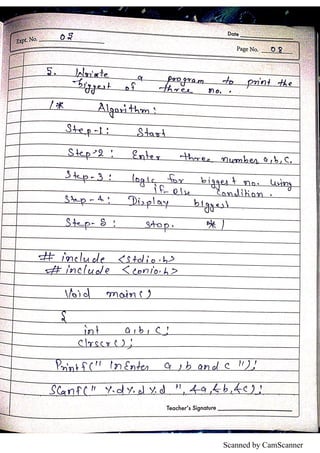 Date
Expt. No. 05
Page No. 08
5. Wriete a program to print the
biggest of three no..
/* Algorithm:
Step-1: Start
Step-2: Enter three number a,b,c.
Step-3: logic for biggest no. using
if else condition.
Step-4: Display biggest
Step-5: stop. */
# include <stdio.h>
# include <conio.h>
Void main()
{
int a,b,c;
clrscr();
Printf(" \nEnter a,b and c ");
Scanf(" %d%d%d ",&a,&b,&c);
Teacher's Signature
Scanned by CamScanner